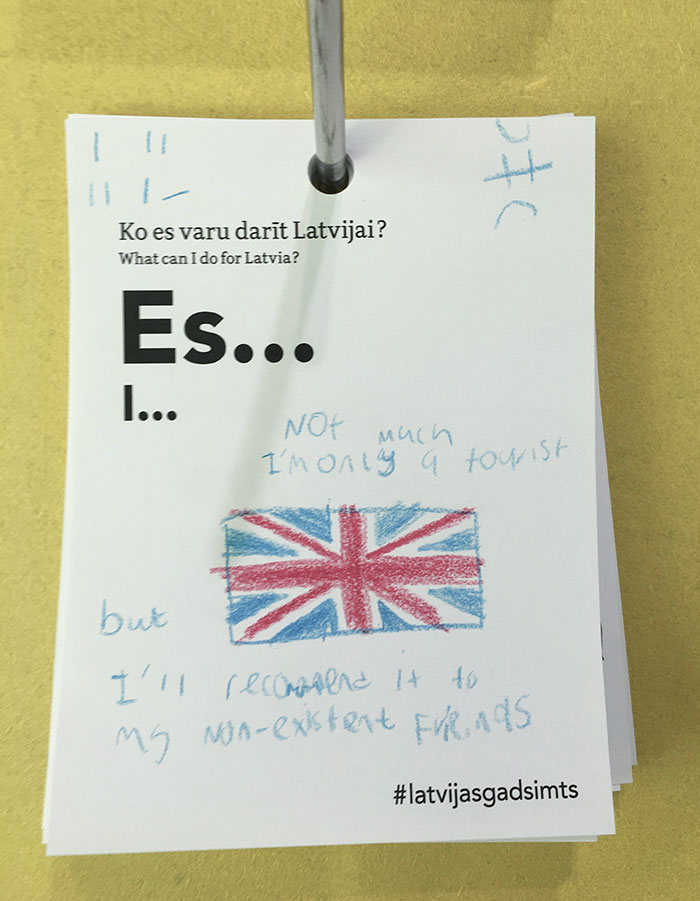 Ko es varu darīt Latvijai?
What can I do for Latvia?
Es...
I...
NOt much
I'm only a tourist
but
I'll recommend it to
my non-existent friends
#latvijasgadsimts